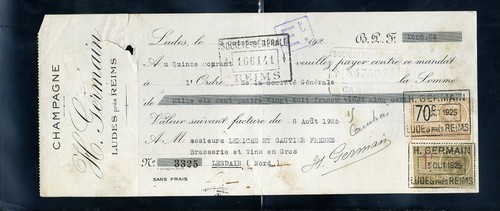 CHAMPAGNE
H. Germain
LUDES près REIMS
Ludes, le 192 B.P.F.
SOCIÉTÉ GÉNÉRALE
166141
REIMS
Au Quinze courant veuillez payer contre ce mandat
à l'Ordre de la Société Générale la Somme
de Mille six cent
Valeur suivant facture du 8 Août 1925
A M essieurs LERICHE ET GAUTIER FRERES
Brasserie et Vins en Gros
No 3325 LESDAIN ( Nord )
SANS FRAIS
H Germain
H. GERMAIN
70c 1925
LUDES PRÈS REIMS
H. GERMAIN
OCT 1925
LUDES PRÈS REIMS